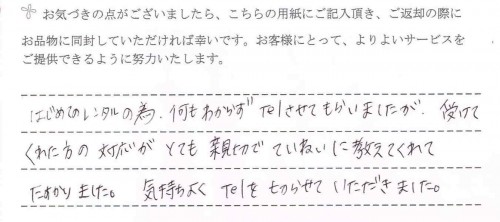 お気づきの点がございましたら、こちらの用紙にご記入頂き、ご返却の際に
お品物に同封していただければ幸いです。お客様にとって、よりよいサービスを
ご提供できるように努力いたします。
はじめてのレンタルの為、何もわからず Telさせてもらいましたが、受けて
くれた方の対応がとても親切でていねいに教えてくれて
たすかりました。 気持ちよく Telを切らせていただきました。